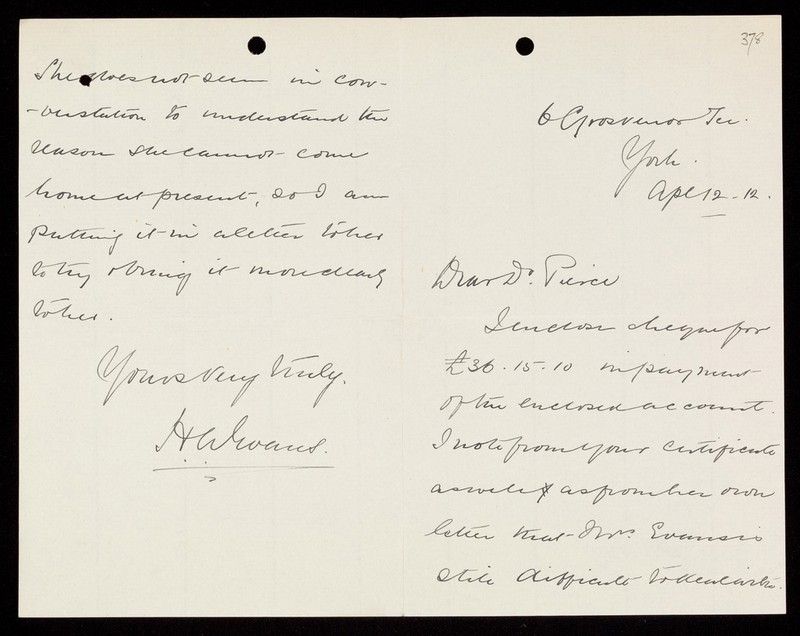 378
6 Grosvenor Ter.
York.
Apl 12 - 12.
Dear Dr. Pierce
I enclose cheque for
£36 . 15 . 10 in payment
of the enclosed account.
I note from your certificate
as well as from her own
letter that Mrs. Evans is
still difficult to deal with.
She does not seem in con-
-verstation to understand the
reason she cannot come
home at present, so I am
putting it in a letter to her
to try & bring it more clearly
to her.
Yours very truly.
H W Evans.